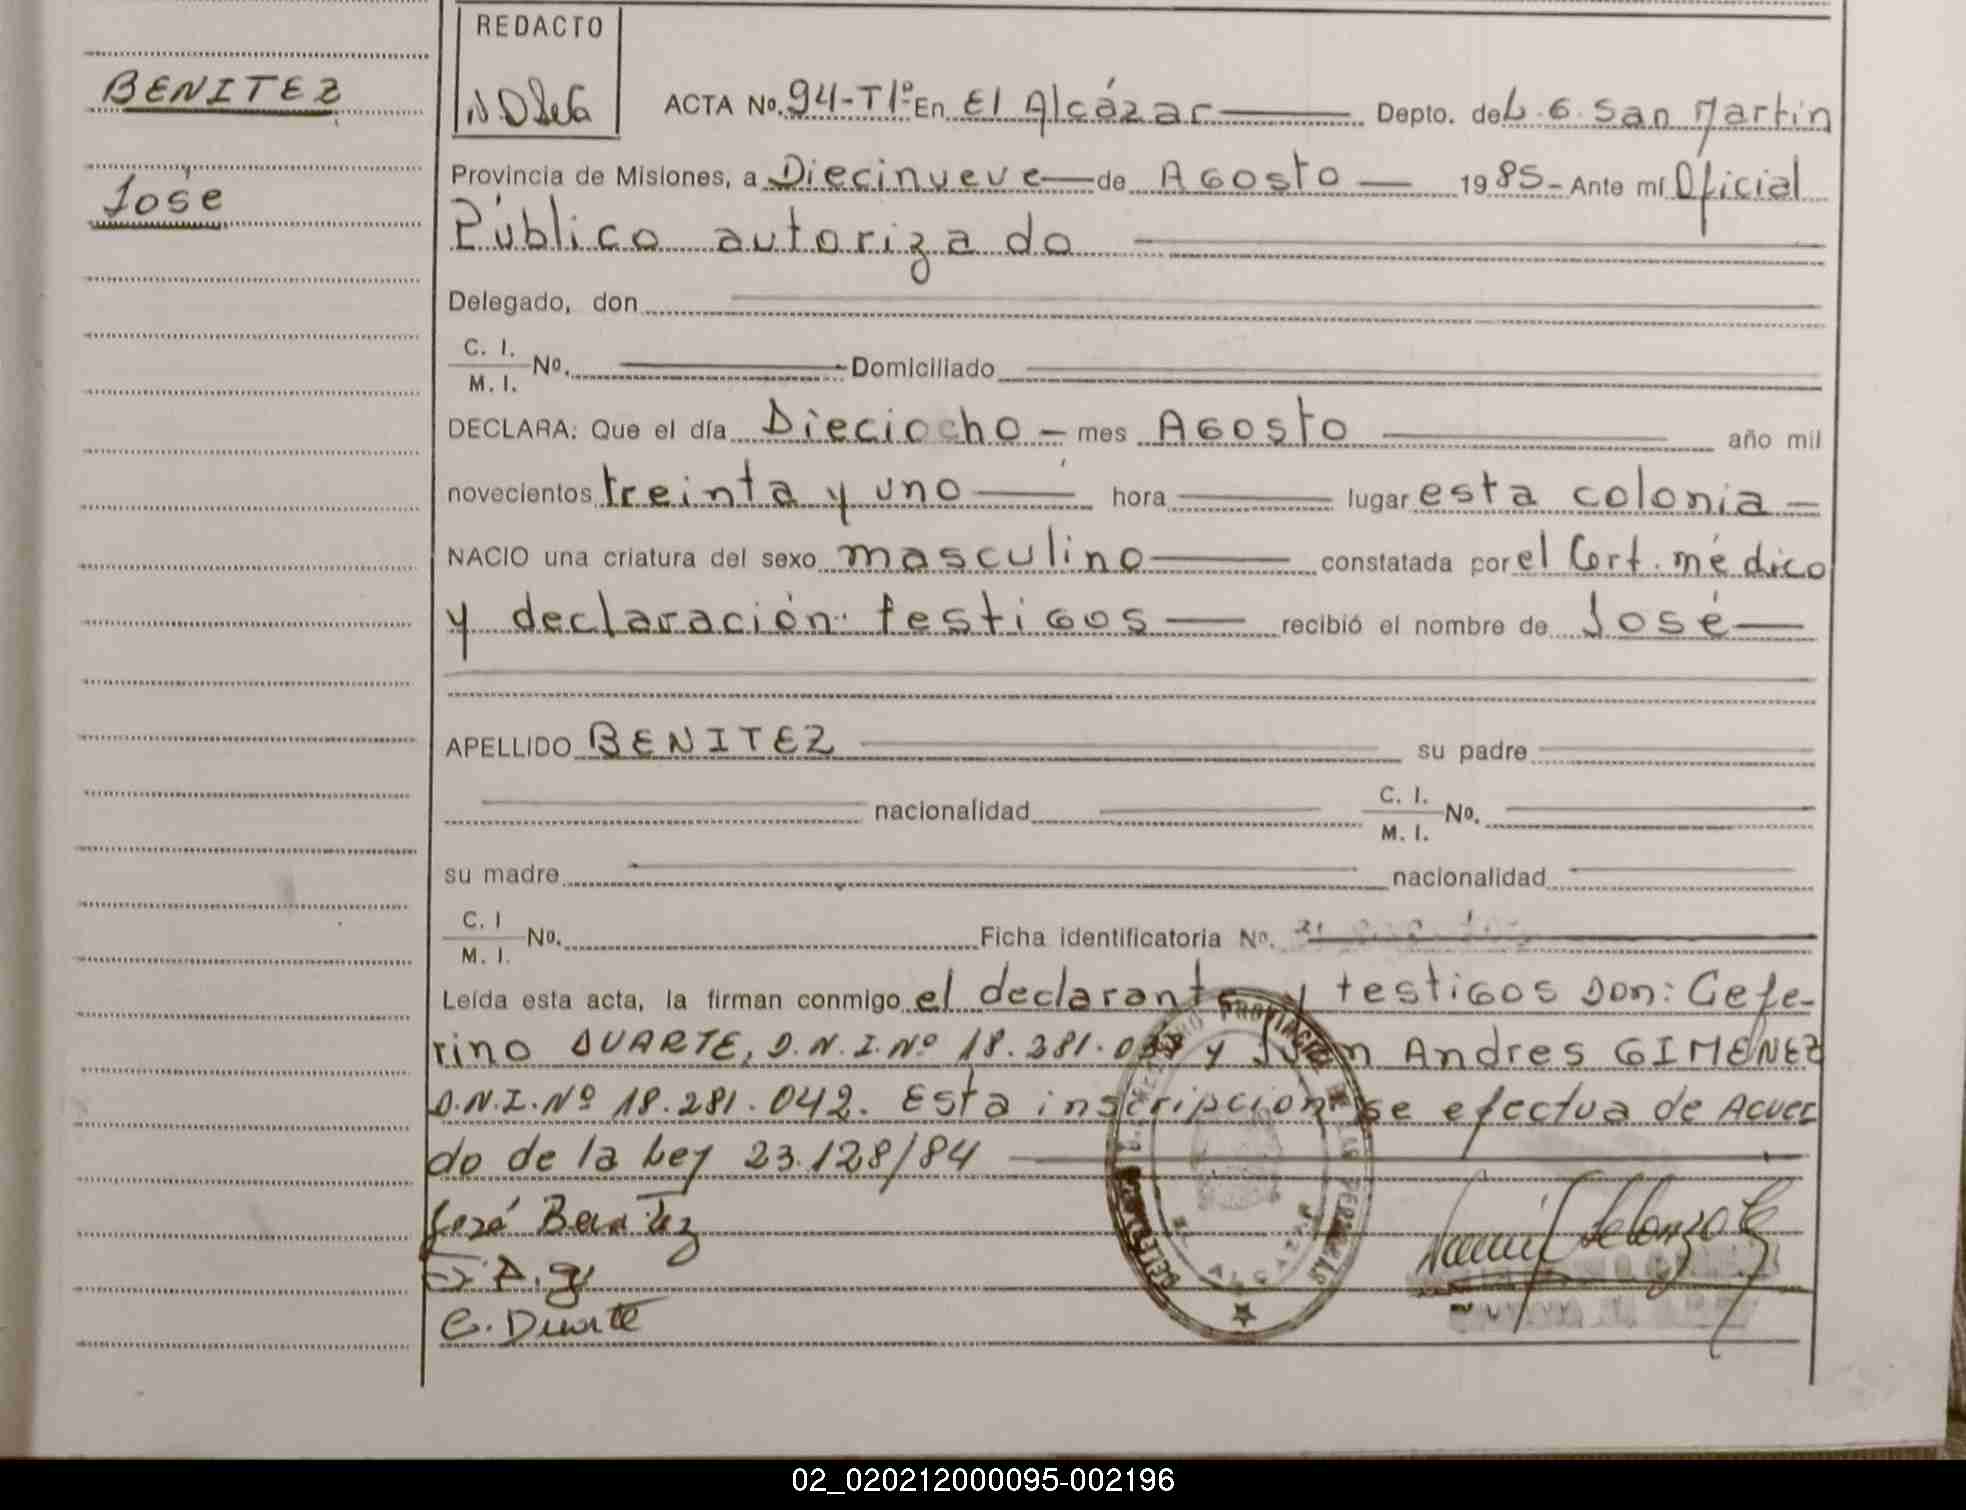 REDACTO
BENITEZ
José
ACTA No. 94-T1º En El Alcázar Depto. de L. G. San Martín
Provincia de Misiones, a Diecinueve de Agosto 1985 - Ante mí Oficial
Público autorizado
Delegado, don
C. I.
M. I. No. Domiciliado
DECLARA: Que el día Dieciocho - mes Agosto año mil
novecientos treinta y uno hora lugar esta colonia -
NACIO una criatura del sexo masculino constatada por el Cert. médico
y declaración testigos recibió el nombre de José
APELLIDO BENITEZ su padre
nacionalidad C. I.
M. I. No.
su madre nacionalidad
C. I
M. I. No. Ficha identificatoria No.
Leída esta acta, la firman conmigo el declarante y testigos Don: Cefe-
rino DUARTE, D.N.I.Nº 18.281. y Juan Andres GIMENEZ
D.N.I.Nº 18.281.042. Esta inscripción se efectua de Acuer
do de la Ley 23.128/84
José Benitez
C. Duarte
PROVINCIAL DE LAS PERSONAS
EL ALCAZAR
02_020212000095-002196